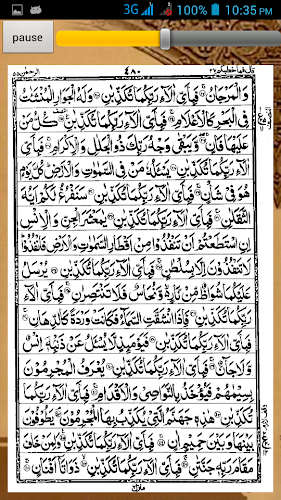 3G 100% 10:35 PM
pause
الرحمٰن ٥٥ ٤٨٠ قال فما خطبكم ٢٧
وَالْمَرْجَانُ ۚ فَبِاَيِّ اٰلَآءِ رَبِّكُمَا تُكَذِّبٰنِ ۝ وَلَهُ الْجَوَارِ الْمُنْشَئٰتُ
فِي الْبَحْرِ كَالْاَعْلَامِ ۚ فَبِاَيِّ اٰلَآءِ رَبِّكُمَا تُكَذِّبٰنِ ۝ كُلُّ مَنْ
عَلَيْهَا فَانٍ ۚ وَّيَبْقٰى وَجْهُ رَبِّكَ ذُو الْجَلٰلِ وَالْاِكْرَامِ ۚ فَبِاَيِّ
اٰلَآءِ رَبِّكُمَا تُكَذِّبٰنِ ۝ يَسْئَلُهٗ مَنْ فِي السَّمٰوٰتِ وَالْاَرْضِ ؕ كُلَّ يَوْمٍ
هُوَ فِيْ شَاْنٍ ۚ فَبِاَيِّ اٰلَآءِ رَبِّكُمَا تُكَذِّبٰنِ ۝ سَنَفْرُغُ لَكُمْ اَيُّهَ
الثَّقَلٰنِ ۚ فَبِاَيِّ اٰلَآءِ رَبِّكُمَا تُكَذِّبٰنِ ۝ يٰمَعْشَرَ الْجِنِّ وَالْاِنْسِ
اِنِ اسْتَطَعْتُمْ اَنْ تَنْفُذُوْا مِنْ اَقْطَارِ السَّمٰوٰتِ وَالْاَرْضِ فَانْفُذُوْا ؕ
لَا تَنْفُذُوْنَ اِلَّا بِسُلْطٰنٍ ۚ فَبِاَيِّ اٰلَآءِ رَبِّكُمَا تُكَذِّبٰنِ ۝ يُرْسَلُ
عَلَيْكُمَا شُوَاظٌ مِّنْ نَّارٍ ۙ وَّنُحَاسٌ فَلَا تَنْتَصِرٰنِ ۚ فَبِاَيِّ اٰلَآءِ
رَبِّكُمَا تُكَذِّبٰنِ ۝ فَاِذَا انْشَقَّتِ السَّمَآءُ فَكَانَتْ وَرْدَةً كَالدِّهَانِ ۚ
فَبِاَيِّ اٰلَآءِ رَبِّكُمَا تُكَذِّبٰنِ ۝ فَيَوْمَئِذٍ لَّا يُسْئَلُ عَنْ ذَنْۢبِهٖۤ اِنْسٌ
وَّلَا جَآنٌّ ۚ فَبِاَيِّ اٰلَآءِ رَبِّكُمَا تُكَذِّبٰنِ ۝ يُعْرَفُ الْمُجْرِمُوْنَ
بِسِيْمٰهُمْ فَيُؤْخَذُ بِالنَّوَاصِيْ وَالْاَقْدَامِ ۚ فَبِاَيِّ اٰلَآءِ رَبِّكُمَا
تُكَذِّبٰنِ ۝ هٰذِهٖ جَهَنَّمُ الَّتِيْ يُكَذِّبُ بِهَا الْمُجْرِمُوْنَ ۘ يَطُوْفُوْنَ
بَيْنَهَا وَبَيْنَ حَمِيْمٍ اٰنٍ ۚ فَبِاَيِّ اٰلَآءِ رَبِّكُمَا تُكَذِّبٰنِ ۝ وَلِمَنْ خَافَ
مَقَامَ رَبِّهٖ جَنَّتٰنِ ۚ فَبِاَيِّ اٰلَآءِ رَبِّكُمَا تُكَذِّبٰنِ ۝ ذَوَاتَاۤ اَفْنَانٍ ۚ